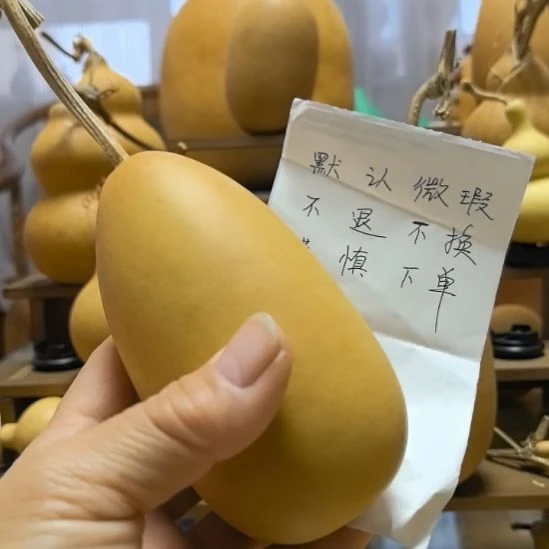 默认微瑕
不退不换
慎下单